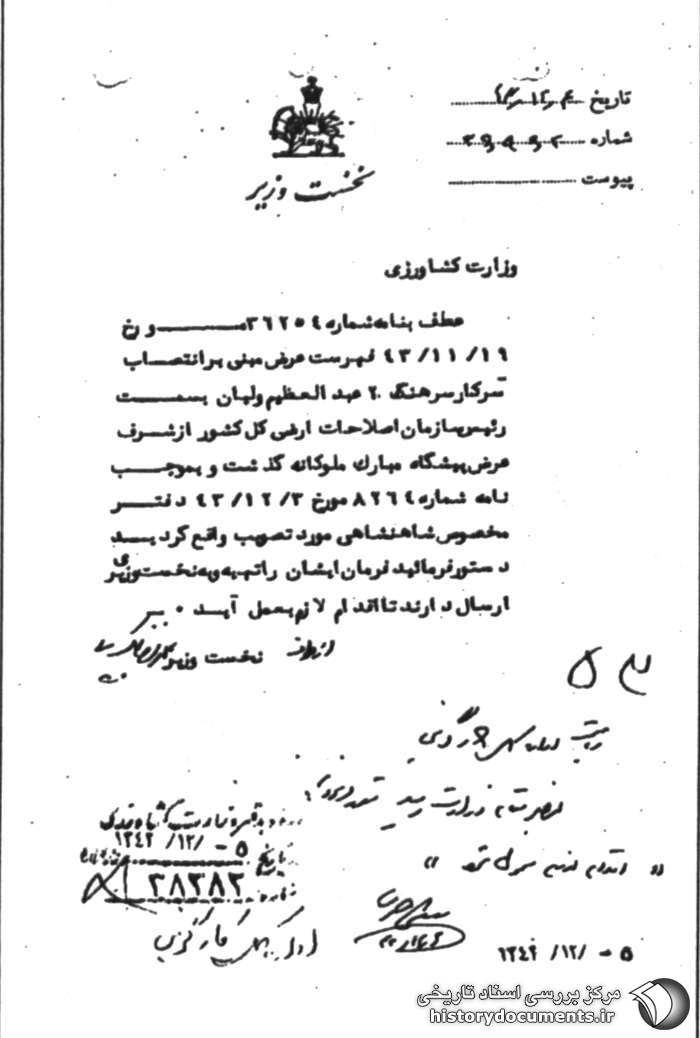 تاریخ
شماره
پیوست
نخست وزیر
وزارت کشاورزی
عطف بنامه شماره ۳۶۲۵۴ مورخ
۴۳/۱۱/۱۹ فهرست عرض مبنی بر انتصاب
سرکار سرهنگ ۲ عبدالعظیم ولیان بسمت
رئیس سازمان اصلاحات ارضی کل کشور از شرف
عرض پیشگاه مبارک ملوکانه گذشت و بموجب
نامه شماره ۸۲۶۴ مورخ ۴۳/۱۲/۳ دفتر
مخصوص شاهنشاهی مورد تصویب واقع گردید
دستور فرمائید فرمان ایشان را تهیه و به نخست وزیری
ارسال دارند تا اقدام لازم بعمل آید ۰
از طرف نخست وزیر
ورود به دفتر وزارت کشاورزی
تاریخ ۵ -/۱۲/ ۱۳۴۳
شماره ۲۸۳۸۲
اداره کل کارگزینی
۵ -/۱۲/ ۱۳۴۳
مرکز بررسی اسناد تاریخی
historydocuments.ir